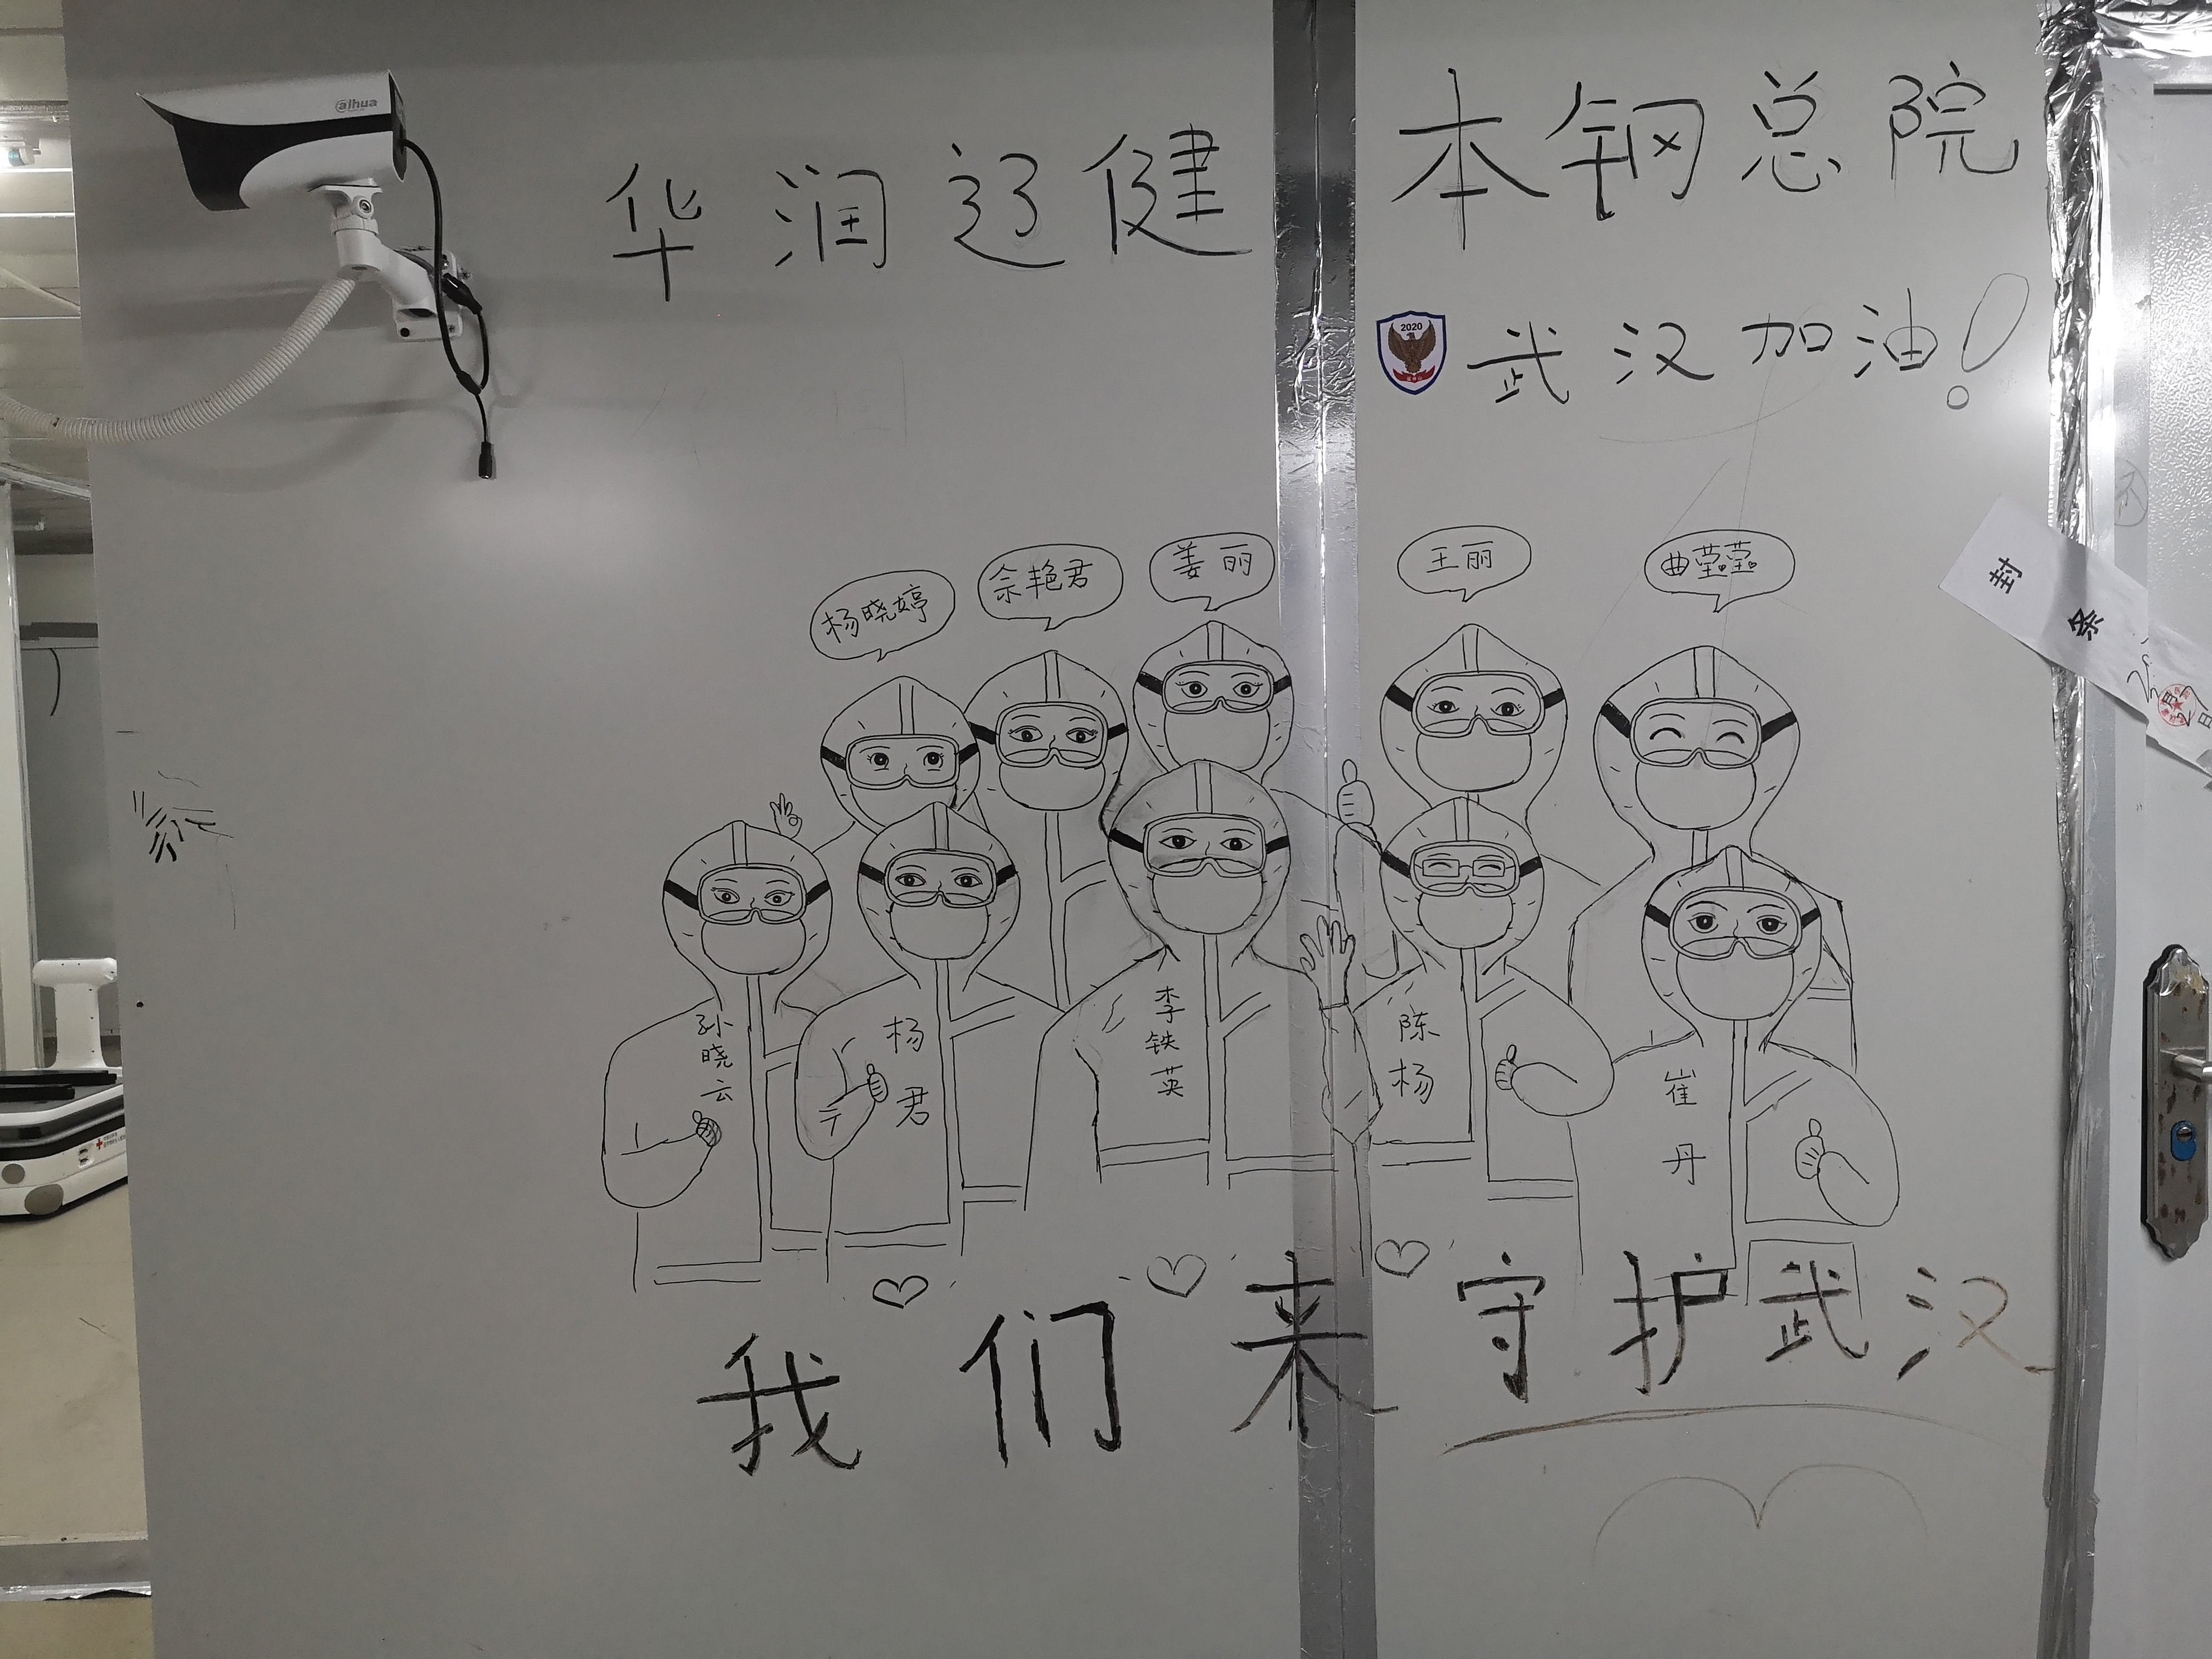 alhua
华润辽健 本钢总院
2020
武汉加油!
杨晓婷
佘艳君
姜丽
王丽
曲莹莹
封条
孙晓云
杨君
李铁英
陈杨
崔丹
我们来守护武汉